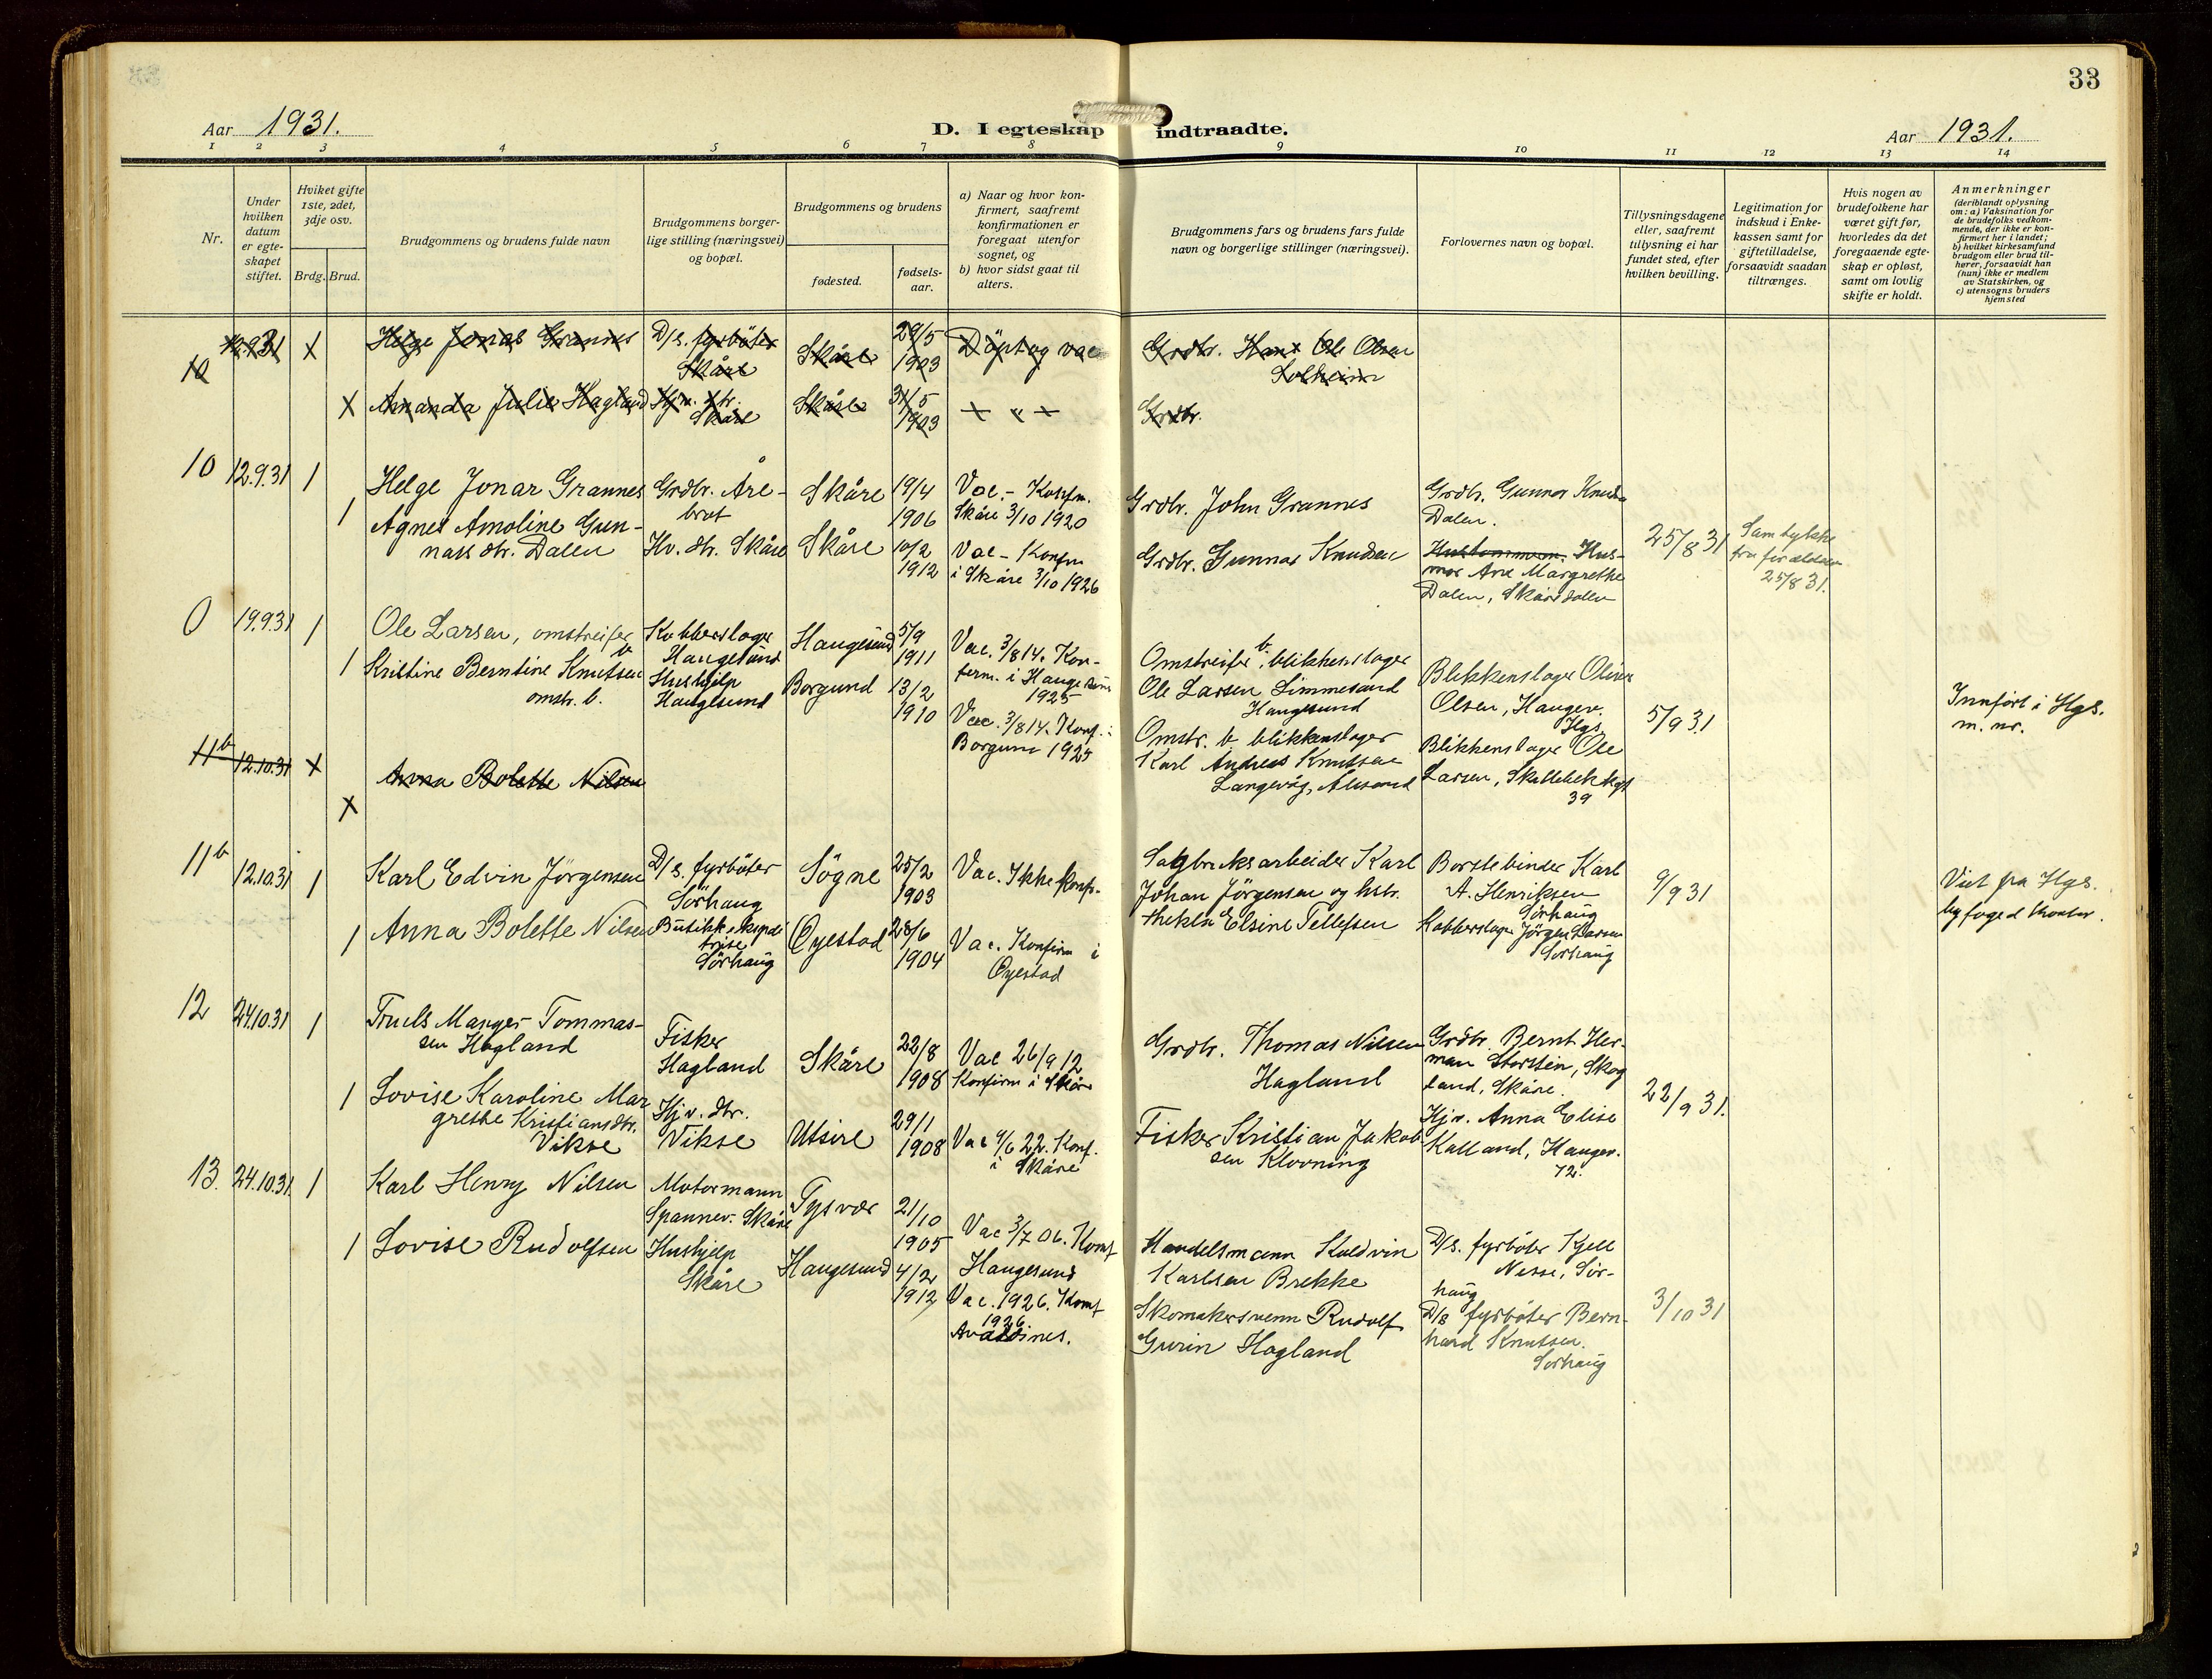 33
Aar 1931.
D. I egteskap indtraadte.
Aar 1931.
1 2 3 4 5 6 7 8 9 10 11 12 13 14
Nr.
Under
hvilken
datum
er egte-
skapet
stiftet.
Hviket gifte
1ste, 2det,
3dje osv.
Brdg. Brud.
Brudgommens og brudens fulde navn
Brudgommens borger-
lige stilling (næringsvei)
og bopæl.
Brudgommens og brudens
fødested.
fødsels-
aar.
a) Naar og hvor kon-
firmert, saafremt
konfirmationen er
foregaat utenfor
sognet, og
b) hvor sidst gaat til
alters.
Brudgommens fars og brudens fars fulde
navn og borgerlige stillinger (næringsvei).
Forlovernes navn og bopæl.
Tillysningsdagene
eller, saafremt
tillysning ei har
fundet sted, efter
hvilken bevilling.
Legitimation for
indskud i Enke-
kassen samt for
giftetilladelse,
forsaavidt saadan
tiltrænges.
Hvis nogen av
brudefolkene har
været gift før,
hvorledes da det
foregaaende egte-
skap er opløst,
samt om lovlig
skifte er holdt.
Anmerkninger
(deriblandt oplysning
om: a) Vaksination for
de brudefolks vedkom-
mende, der ikke er kon-
firmert her i landet;
b) hvilket kirkesamfund
brudgom eller brud til-
hører, forsaavidt han
(hun) ikke er medlem
av Statskirken, og
c) utensogns bruders
hjemsted
10
Helge Jonas Grannes
D/s. fyrbøter
Skåre
Skåre
29/5
1903
Döpt og vac
Grdbr. Hans Ole Olsen
Solheim
Amanda Julie Hagland
Skåre
Skåre
31/5
1903
Grdbr.
10 12.9.31 1
Helge Jonar Grannes
Grdbr. Åre-
brot
Skåre
19/4
1906
Vac. - Konfm.
Skåre 3/10 1920
Grdbr. John Grannes
Grdbr. Gunnar Knuds
Dalen.
1
Agnes Amoline Gun-
nars dtr. Dalen
Hv. dtr. Skåre
Skåre
10/2
1912
Vac - Konfm
i Skåre 3/10 1926
Grdbr. Gunnar Knudsen
Hus-
mor Ane Margrethe
Dalen, Skåredalen
25/8 31
Samtykke
fra forældre
25/8 31.
0 19.9.31 1
Ole Larsen, omstreifer
Kobberslager
Haugesund
Haugesund
5/9
1911
Vac. 3/8 14. Kon-
ferm. i Haugesund
1925
Omstreifer b. blikkenslager
Ole Larsen Limmesand
Haugesund
Blikkenslager Oliver
Olsen, Haugev.
Hgs
1
Kristine Berntine Knutsen
omstr. b.
Hushjelp
Haugesund
Borgund
13/2
1910
Vac. 3/8 14. Konf. i
Borgund 1925
Omstr. b blikkenslager
Karl Andreas Knutsen
Langevåg, Ålesund
Blikkenslager Ole
Larsen, Skallebekkgt
39
5/9 31
Innført i Hgs.
m. nr.
11b 12.10.31
Anna Bolette Nilsen
11b 12.10.31 1
Karl Edvin Jørgensen
D/s. fyrbøter
Sørhaug
Søgne
25/2
1903
Vac. Ikke konf.
Sagbruksarbeider Karl
Johan Jørgensen og hstr.
Thekla Elsine Tellefsen
Børstebinder Karl
A. Henriksen
Sørhaug
1
Anna Bolette Nilsen
Butikkekspedi
trise
Sørhaug
Øyestad
28/6
1904
Vac. Konfirm i
Øyestad
Kobberslager Jørgen Larsen
Sørhaug
9/9 31
Viet på Hgs.
byfoged kontor.
12 24.10.31 1
Truels Manger Tommas-
sen Hagland
Fisker
Hagland
Skåre
22/8
1908
Vac 26/9 12
Konfirm i Skåre
Grdbr. Thomas Nilsen
Hagland
Grdbr. Bernt Her-
man Storstein, Skog
land, Skåre.
1
Lovise Karoline Mar
grethe Kristiansdtr.
Vikse
Hjv. dtr.
Vikse
Utsire
29/1
1908
Vac 9/6 22. Konf.
i Skåre
Fisker Kristian Jakob
sen Klovning
Hjv. Anna Elise
Kalland, Haugev.
72.
22/9 31.
13. 24.10.31. 1
Karl Henry Nilsen
Motormann
Spannev. Skåre
Tysvær
21/10
1905
Vac 3/7 06. Konf
Haugesund
Handelsmann Koldvin
Karlsen Brekke
D/s. fyrbøter Kjell
Nesse, Sør-
haug
1
Lovise Rudolfsen
Hushjelp
Skåre
Haugesund
4/2
1912
Vac. 1926. Konf
1926
Avaldsnes.
Skomakersvenn Rudolf
Gurin Hagland
D/s fyrbøter Bern-
hard Knutsen.
Sørhaug
3/10 31